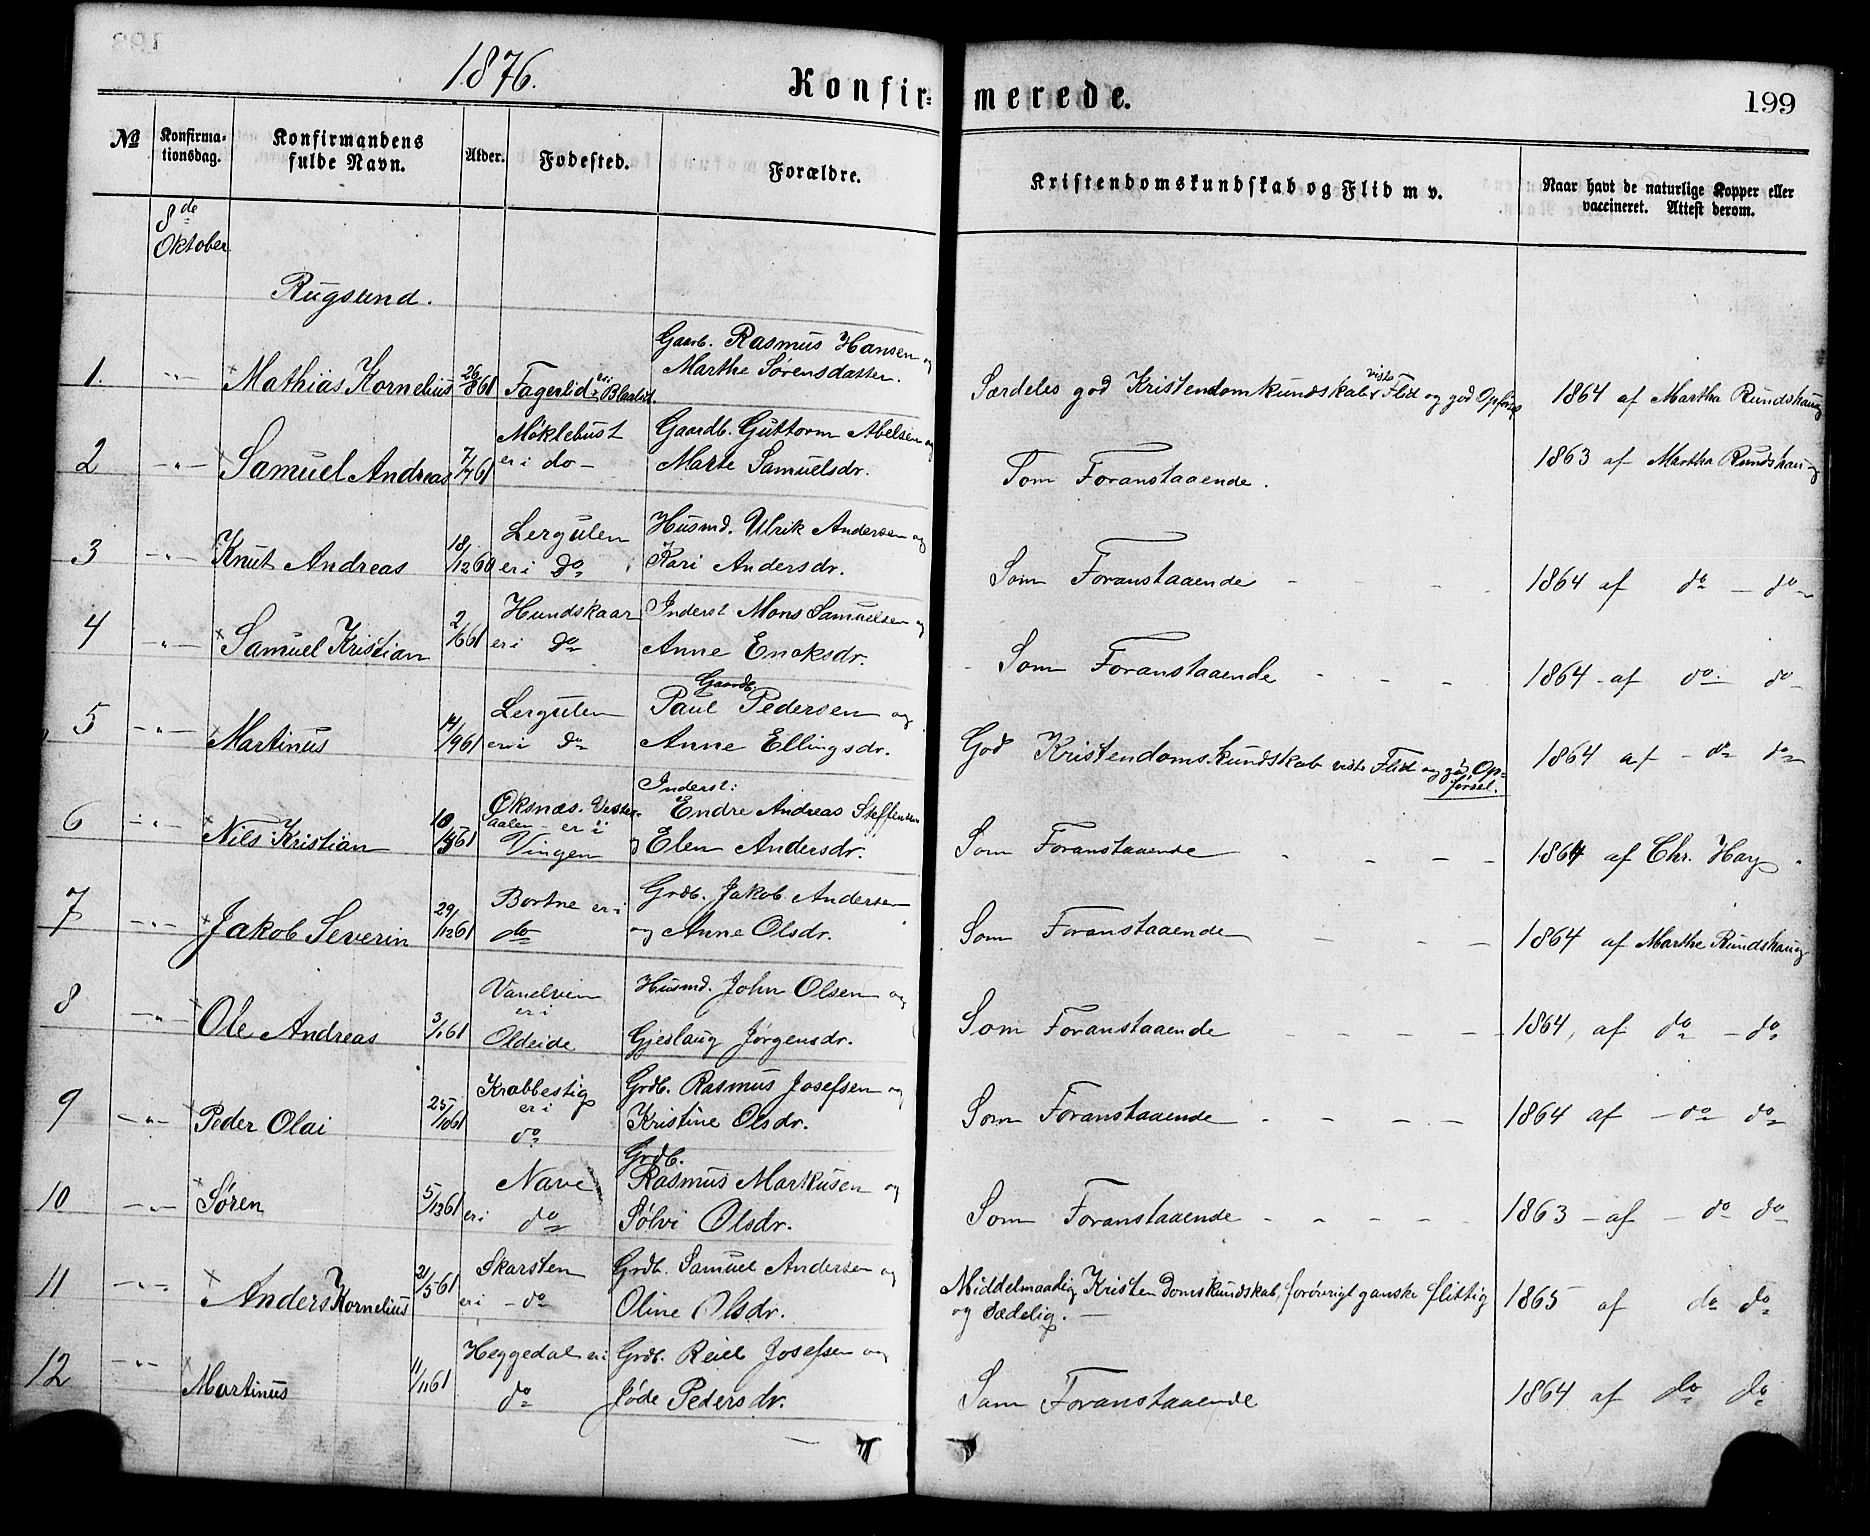 1876.
Konfir=
merede.
199
No
Konfirma=
tionsdag.
Konfirmandens
fulde Navn.
Alder.
Fødested.
Forældre.
Kristendomskundskab og Flid m v.
Naar havt de naturlige Kopper eller
vaccineret. Attest derom.
8de
Oktober
Rugsund.
Gaardb. Rasmus Hansen og
1. -"- Mathias Kornelius 26/8 61 Fagerlid er i Blaalid. Marthe Sørensdatter. Særdeles god Kristendomkundskab, viste Flid og god Opførsel 1864 af Martha Rundshaug
Møklebust Gaardb. Guttorm Abelsen og
2 -"- Samuel Andreas 7/7 61 er i do - Marte Samuelsdr. Som Foranstaaende. 1863 af Martha Rundshaug
Lergulen Husmd. Ulrik Andersen og
3 -"- Knut Andreas 18/12 60 er i do Kari Andersdr. Som Foranstaaende - - - - 1864 af do - do
Hundskaar Inderst Mons Samuelsen og
4 -"- Samuel Kristian 2/6 61 er i do Anne Enoksdr. - Som Foranstaaende - - - 1864 - af do do
Gaardb.
Lergulen Paul Pedersen og
5 -"- Martinus 14/9 61 er i do Anne Ellingsdr. God Kristendomskundskab viste Flid og god Op=
førsel. 1864 af - do do
Inderst:
Øksnæs. Vester= Endre Andreas Steffensen
6 -"- Nils Kristian 10/5 61 aalen - er i
Vingen og Elen Andersdr. Som Foranstaaende - - - - 1864 af Chr. Hay
Bortne er i Grdb. Jakob Andersen
7 -"- Jakob Severin 29/12 61 do og Anne Olsdr. Som Foranstaaende - - - 1864 af Marthe Rundshaug
Vanelvien Husmd. John Olsen og
er i
8 -"- Ole Andreas 3/1 61 Oldeide Gjeslaug Jørgensdr. Som Foranstaaende - - - - 1864, af do - do
Krabbestig Grdb. Rasmus Josefsen og
er i
9 -"- Peder Olai 25/10 61 do Kristine Olsdr. Som Foranstaaende - - - - 1864 af - do do
Grdb.
Nave Rasmus Markusen og
10 -"- Søren 5/12 61 er i do Sølvi Olsdr. Som Foranstaaende - - - - - 1863 - af - do do
Skarsten Grdb. Samuel Andersen og
11 -"- Anders Kornelius 2/5 61 er i - do Oline Olsdr. Middelmaadig Kristendomskundskab, forøvrigt ganske flittig
og sædelig. - 1865 af do do
Heggedal er i Grdb. Reiel Josefsen og
12 -"- Martinus 11/11 61 do Jøde Pedersdr. Som Foranstaaende 1864 af do do